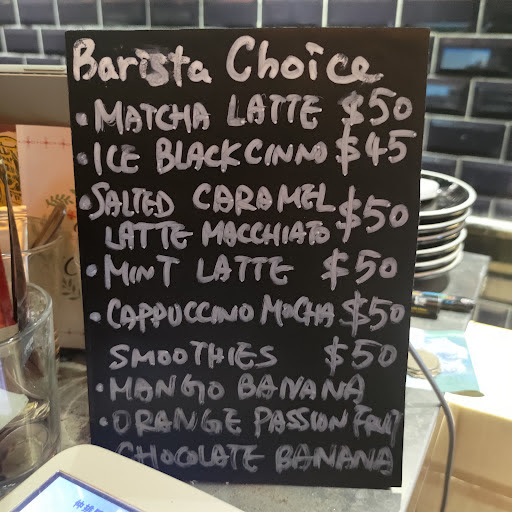 Barista Choice
• MATCHA LATTE $50
• ICE BLACKCINNO $45
• SALTED CARAMEL
LATTE MACCHIATO $50
• MINT LATTE $50
• CAPPUCCINO MOCHA $50
SMOOTHIES $50
• MANGO BANANA
• ORANGE PASSION FRUIT
CHOCOLATE BANANA